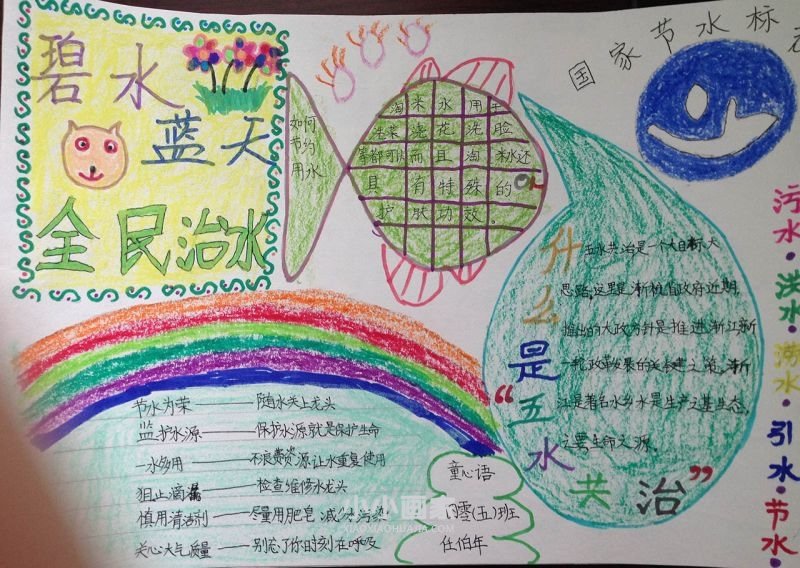 碧水
蓝天
全民治水
如何
节约
用水
淘米水用手
洗菜
浇花洗脸
等都可以而且淘米水还
具有特殊的
护肤功效。
国家节水标志
什么是“五水共治”
五水共治是一个大目标大
思路,这里是浙江省政府近期
推出的大政方针是推进浙江新
一轮改革发展的关键之策。浙
江是著名水乡水是生产之基生态
之要生命之源。
污水·洪水·涝水·引水·节水·
节水为荣——随水关上龙头
监护水源——保护水源就是保护生命
一水多用——不浪费资源让水重复使用
阻止滴漏——检查维修水龙头
慎用清洁剂——尽量用肥皂 减少水污染
关心大气质量——别忘了你时刻在呼吸
童心语
零(五)班
任伯年
小小画家
XIAOXIAOHUAJIA.COM